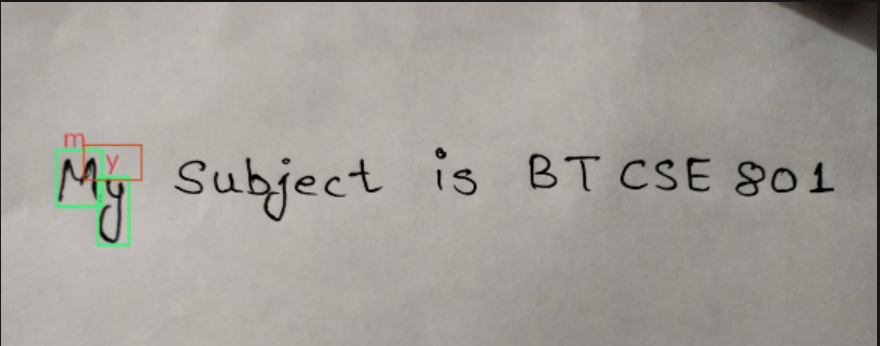 m
y
My Subject is BTCSE 801